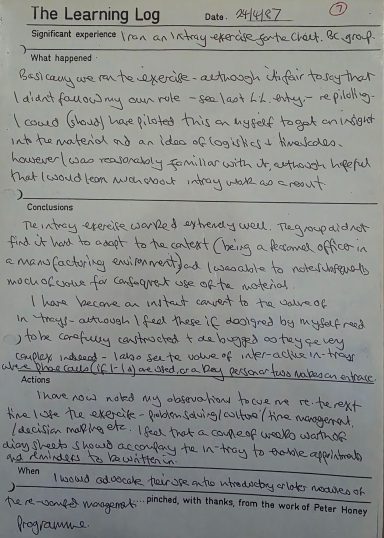 The Learning Log Date. 24/4/87 7
Significant experience I ran an Intray exercise for the Chart. BC. group.
What happened
Basically we ran the exercise - although it is fair to say that
I didn't follow my own rule - see last LL. entry - re piloting.
I could (should) have piloted this on myself to get an insight
into the material and an idea of logistics + timescales.
however I was reasonably familiar with it, although hopeful
that I would learn much about intray work as a result
Conclusions
The intray exercise worked extremely well. The group did not
find it hard to adapt to the context (being a personnel officer in
a manufacturing environment) and I was able to note subsequently
much of value for consequent use of the material.
I have become an instant convert to the value of
in trays - although I feel these if designed by myself need
to be carefully constructed + de bugged as they are very
complex indeed - I also see the value of inter-active in-trays
where phone calls (if 1-1s) are used, or a key person or two makes an entrance.
Actions
I have now noted my observations to we me re. the next
time I use the exercise - problem solving / culture / time management
/ decision making etc. I feel that a couple of weeks worth of
diary sheets should accompany the in-tray to enable appointments
and reminders to be written in.
When I would advocate their use on the introductory or later modules of
the re-vamped management
pinched, with thanks, from the work of Peter Honey
Programme.